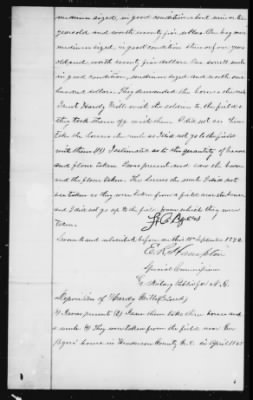 medium sized, in good condition about nine or ten
years old and worth seventy five dollars. One bay mare
medium sized in good condition eleven or twelve years
old and worth seventy five dollars One small mule
in good condition, medium sized and worth one
hundred dollars. They demanded the horses she sent
Hardy Mills with the soldiers to the field &
they took them up with them I did not see them
take the horses the mule as I did not go to the field
with them (4) I estimated as to the quantity of bacon
and flour taken I was present and saw the bacon
and the flour taken. The horses the mule I did not
see taken as they were taken from a field near the house
and I did not go up to the field from which they were
taken.
Byers
Sworn to and subscribed before me this 10th September 1872
E. R. Hampton
Special Commissioner
& Notary Public for N. C.
Deposition of Hardy Mills
(1) I was present (2) I saw them take three horses and
a mule (4) They were taken from the field near the
Byers house in Henderson County N. C. in April 1865